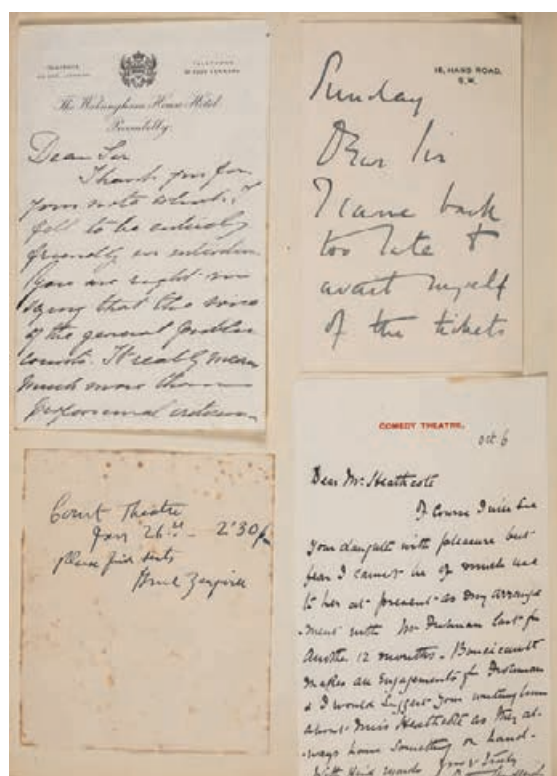 The Walsingham House Hotel
Piccadilly.
Dear Sir
Thank you for
your note which I
felt to be entirely
friendly in intention.
You are right in
saying that the voice
of the general public
counts. It really means
much more than
professional criticism
16, HANS ROAD,
S.W.
Sunday
Dear Sir
I came back
too late to
avail myself
of the tickets
Court Theatre
Jany 26th - 2.30
please find seats
COMEDY THEATRE.
Oct 6
Dear Mr. Heathcote
Of course I will see
your daughter with pleasure but
fear I cannot be of much use
to her at present as my arrange
-ment with Mr Frohman last for
Another 12 months. Boucicault
makes all Engagements for Frohman
& I would suggest your writing him
about Miss Heathcote as they al-
-ways have something on hand.
With kind regards